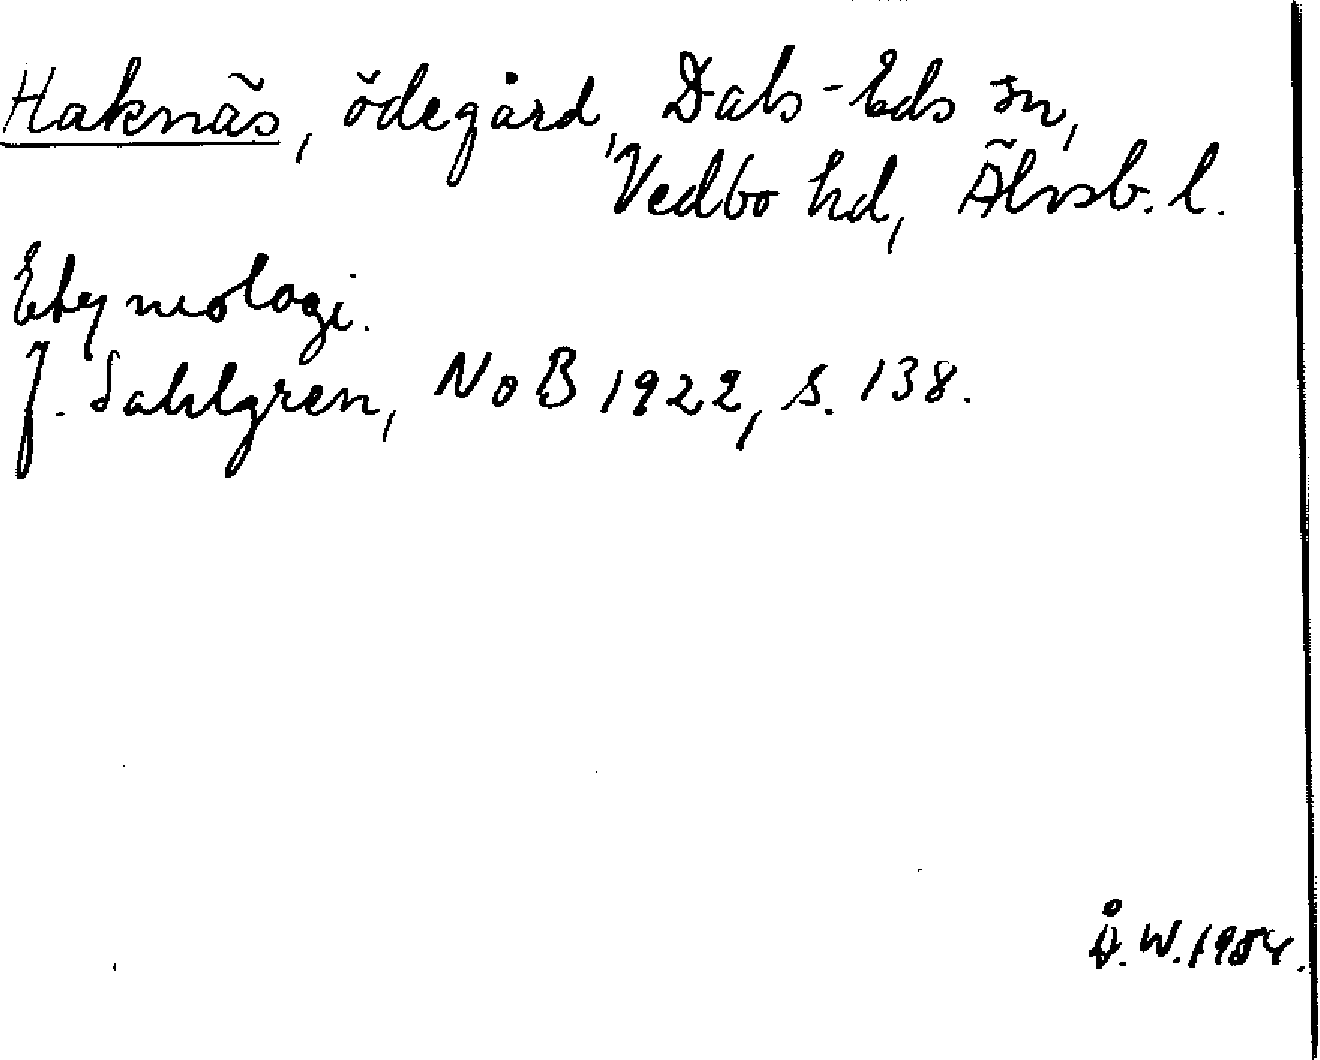 Haknäs, ödegård, Dals-Eds sn,
Vedbo hd, Älvsb. l.
Etymologi.
J. Sahlgren, NoB 1922, s. 138.
Å. W. 1954.